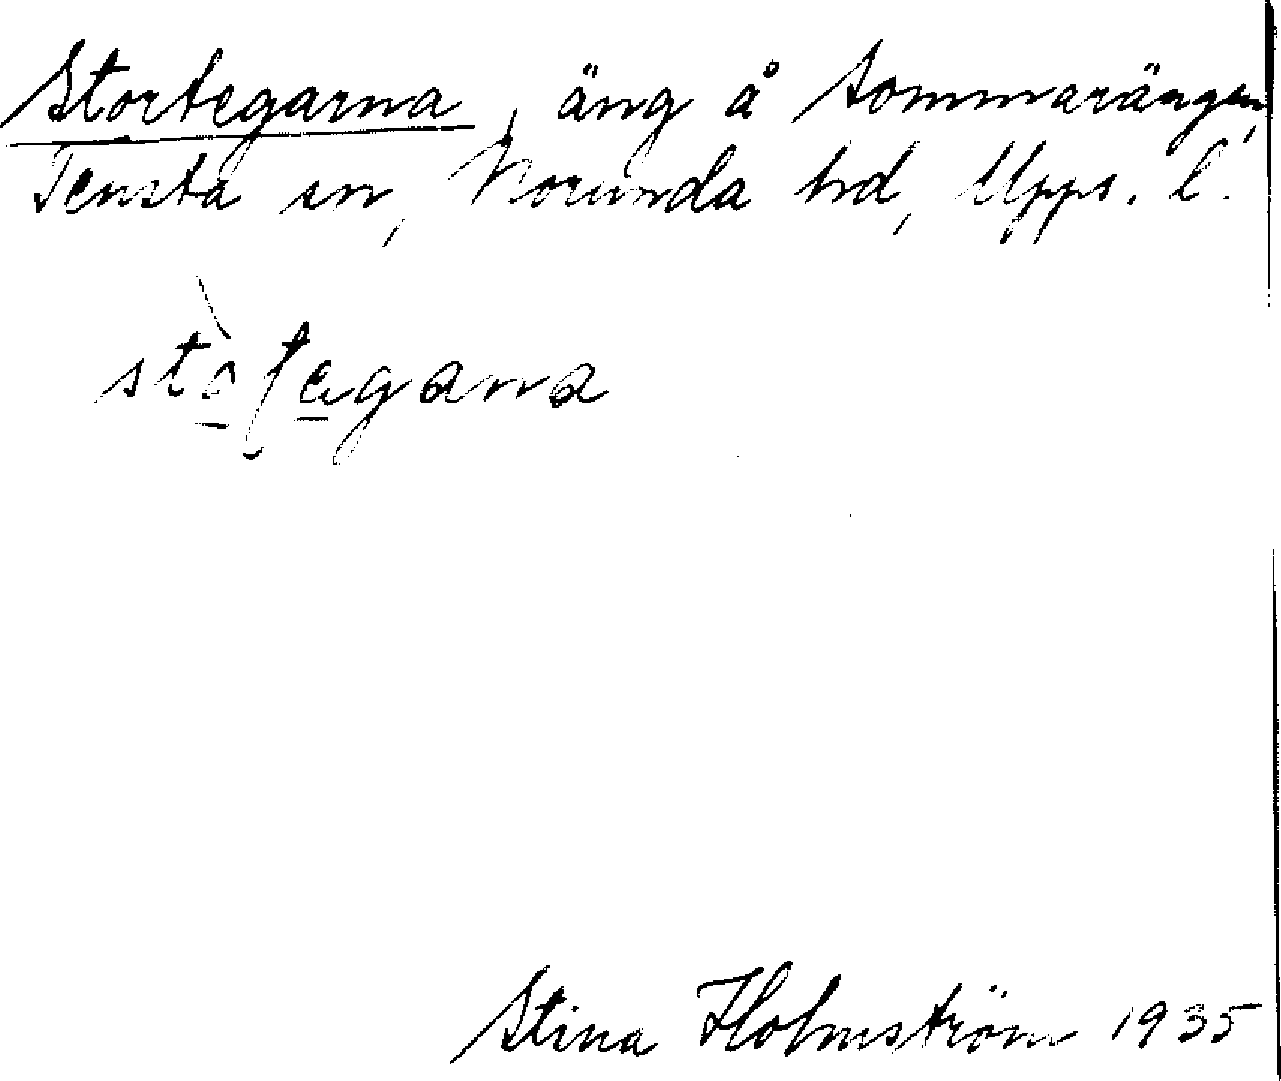 Stortegarna, äng å Sommarängen,
Tensta sn, Norunda hd, Upps. l.
stò̱ʈe̱gaṇa
Stina Holmström 1935